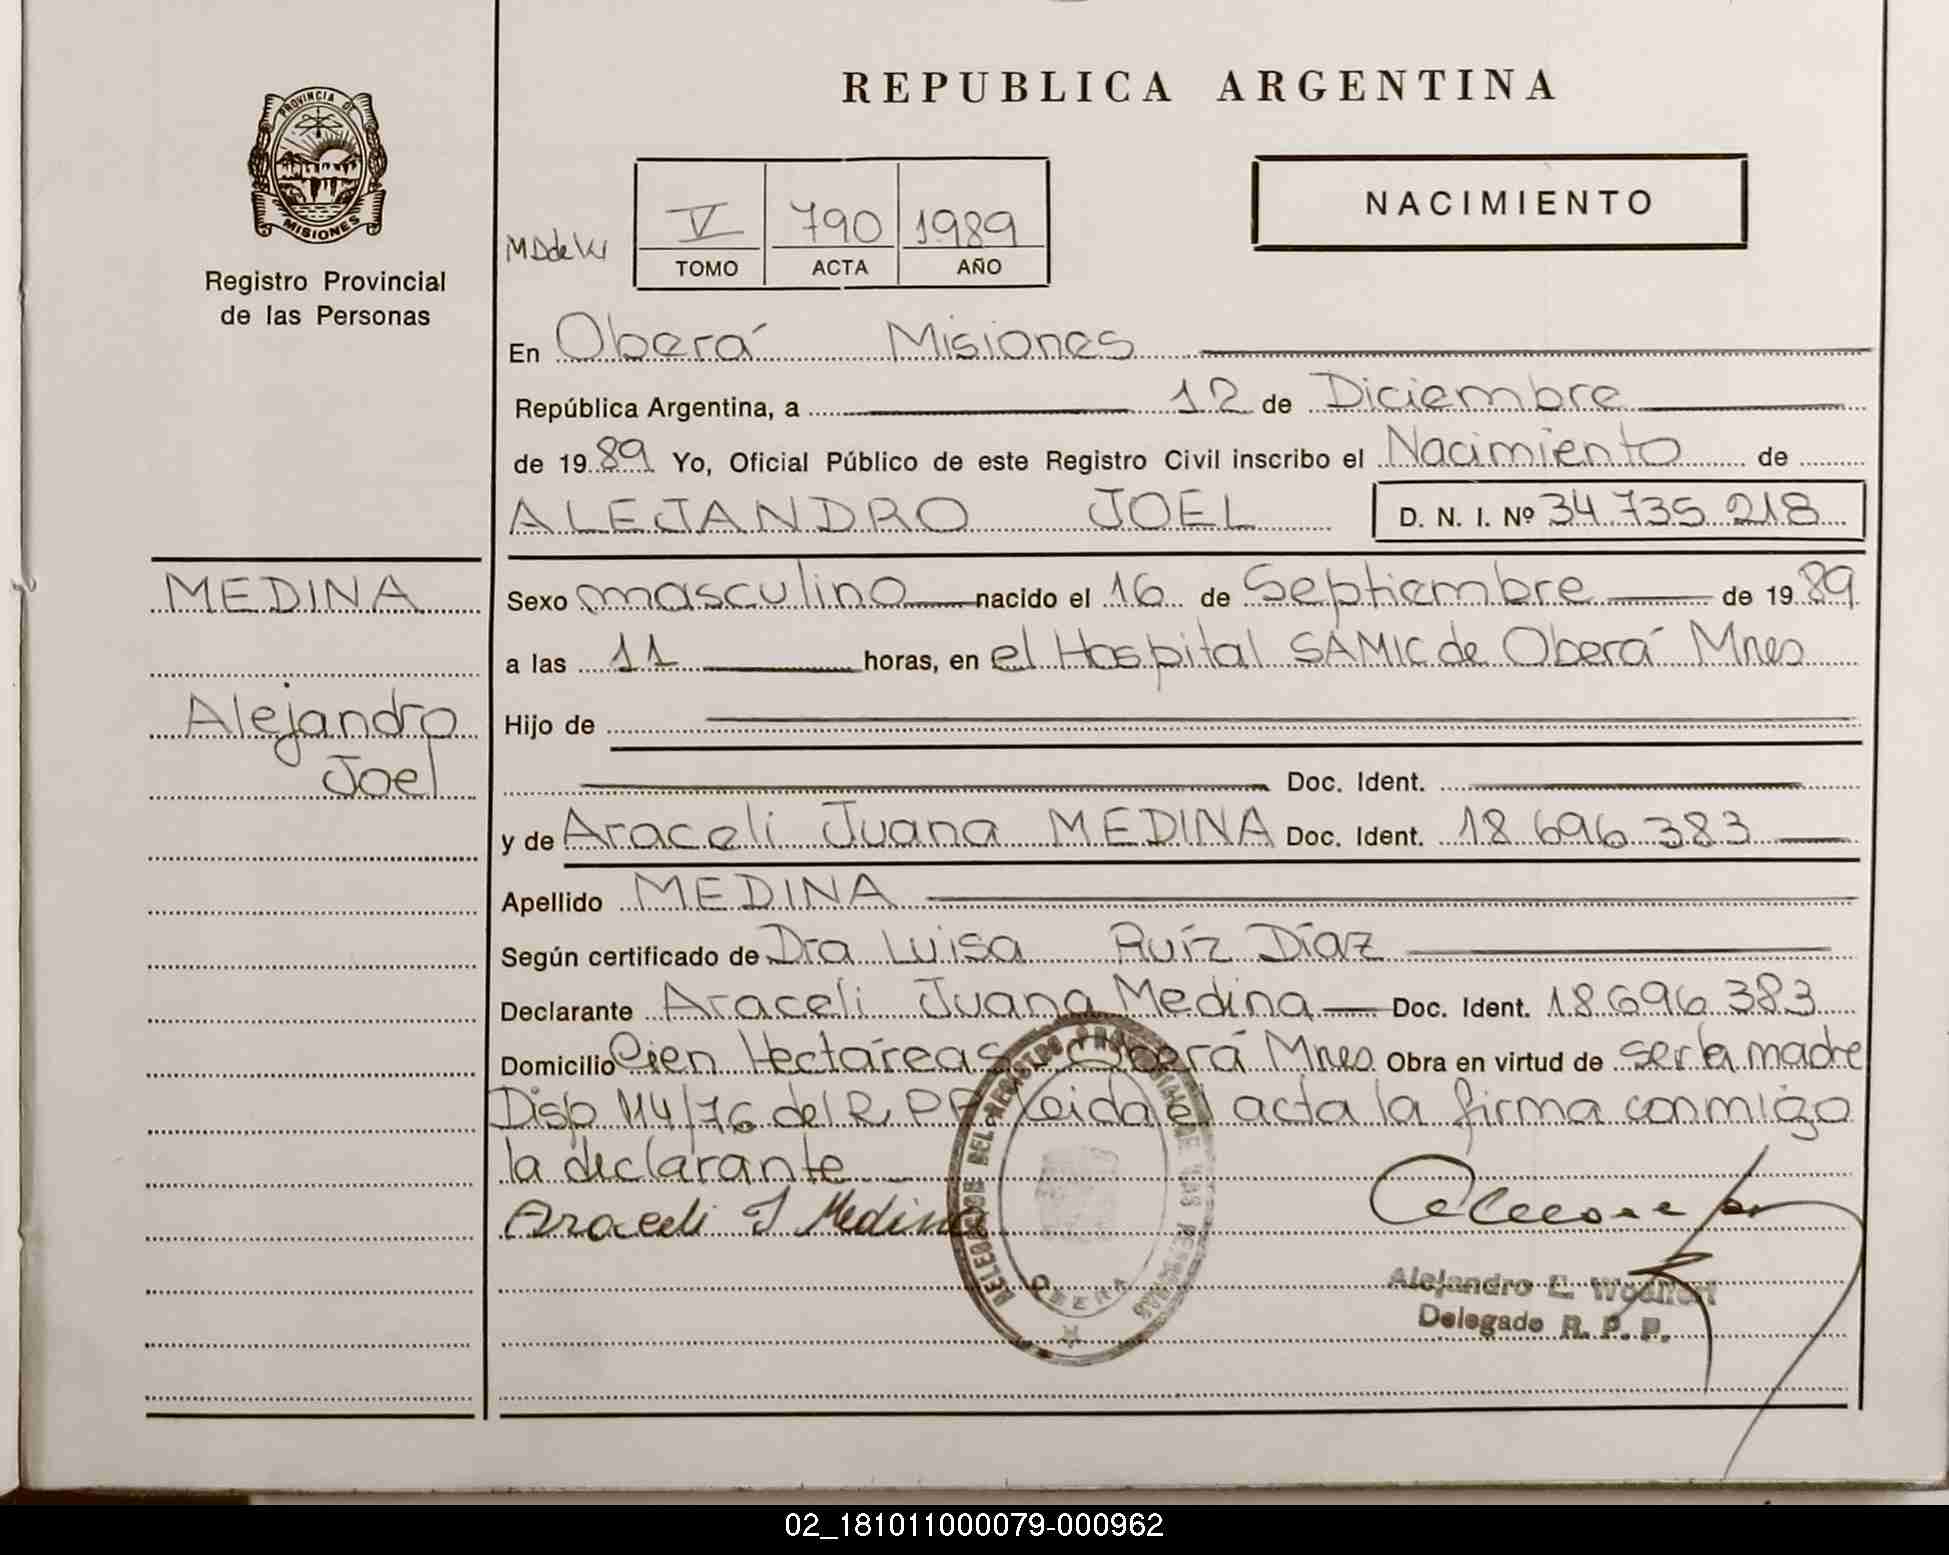 REPUBLICA ARGENTINA
PROVINCIA DE
MISIONES
Registro Provincial
de las Personas
NACIMIENTO
V 790 1989
TOMO ACTA AÑO
En Oberá Misiones
República Argentina, a 12 de Diciembre
de 1989 Yo, Oficial Público de este Registro Civil inscribo el Nacimiento de
ALEJANDRO JOEL D. N. I. Nº 34.735.218
MEDINA
Alejandro
Joel
Sexo masculino nacido el 16 de Septiembre de 1989
a las 11 horas, en el Hospital SAMIC de Oberá Mnes
Hijo de
Doc. Ident.
y de Araceli Juana MEDINA Doc. Ident. 18.696.383
Apellido MEDINA
Según certificado de Dra Luisa Ruíz Díaz
Declarante Araceli Juana Medina Doc. Ident. 18.696.383
Domicilio Cien Hectáreas Oberá Mnes Obra en virtud de ser la madre
Disp 114/76 del R.P.P. Leida el acta la firma conmigo
la declarante
Araceli J Medina
DELEGADO DEL REGISTRO PROVINCIAL DE LAS PERSONAS
OBERA
Alejandro E.
Delegado R. P. P.
02_181011000079-000962